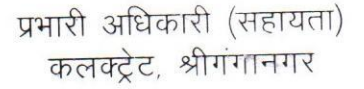 प्रभारी अधिकारी (सहायता)
कलक्ट्रेट, श्रीगंगानगर